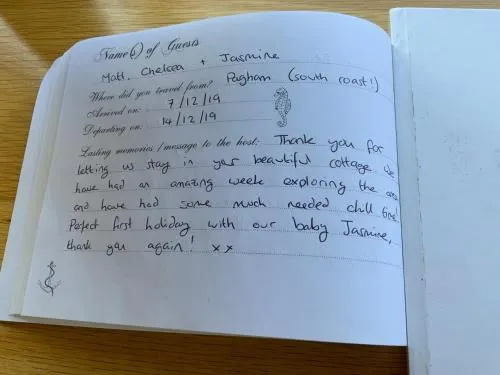 Name(s) of Guests
Matt, Chelsea + Jasmine
Where did you travel from? Pagham (south coast!)
Arrived on: 7/12/19
Departing on: 14/12/19
Lasting memories / message to the host: Thank you for
letting us stay in your beautiful cottage we
have had an amazing week exploring the area
and have had some much needed chill time.
Perfect first holiday with our baby Jasmine,
thank you again! xx